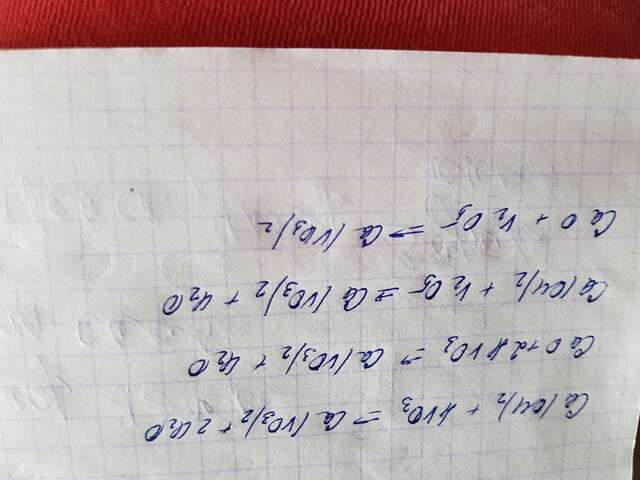 Ca(OH)2 + HVO3 => Ca(VO3)2 + 2H2O
CaO + 2HVO3 => Ca(VO3)2 + H2O
Ca(OH)2 + V2O5 => Ca(VO3)2 + H2O
CaO + V2O5 => Ca(VO3)2